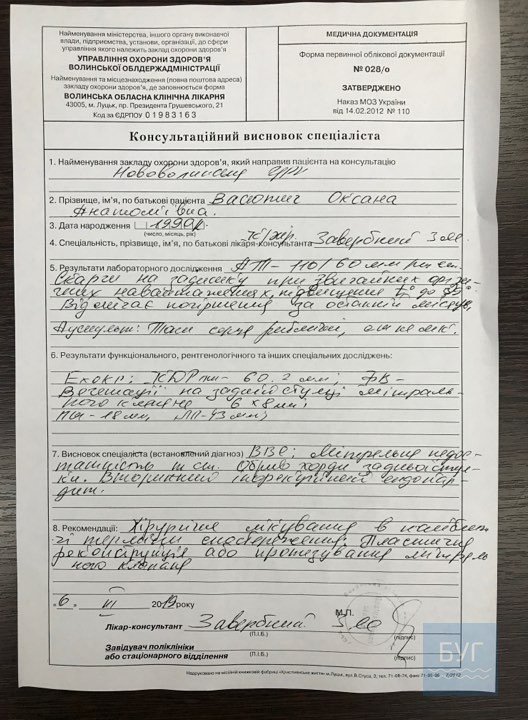 Найменування міністерства, іншого органу виконавчої
влади, підприємства, установи, організації, до сфери
управління якого належить заклад охорони здоров'я
УПРАВЛІННЯ ОХОРОНИ ЗДОРОВ'Я
ВОЛИНСЬКОЇ ОБЛДЕРЖАДМІНІСТРАЦІЇ
Найменування та місцезнаходження (повна поштова адреса)
закладу охорони здоров'я, де заповнюється форма
ВОЛИНСЬКА ОБЛАСНА КЛІНІЧНА ЛІКАРНЯ
43005, м. Луцьк, пр. Президента Грушевського, 21
Код за ЄДРПОУ 01983163
МЕДИЧНА ДОКУМЕНТАЦІЯ
Форма первинної облікової документації
№ 028/о
ЗАТВЕРДЖЕНО
Наказ МОЗ України
від 14.02.2012 № 110
Консультаційний висновок спеціаліста
1. Найменування закладу охорони здоров'я, який направив пацієнта на консультацію
Нововолинськ
2. Прізвище, ім'я, по батькові пацієнта Васютич Оксана
Анатоліївна.
3. Дата народження 1990р
(число, місяць, рік)
4. Спеціальність, прізвище, ім'я, по батькові лікаря-консультанта к/хір. Завербний З.М.
5. Результати лабораторного дослідження АТ - 110/60 мм рт ст.
Скарги на задишку при звичайних фізи-
чних навантаженнях, підвищення t° до
Відмічає погіршення за останній місяць,
Аускульт: Тони серця ритмічні,
6. Результати функціонального, рентгенологічного та інших спеціальних досліджень:
Ехокг: КДР 60,2 мм; ФВ-
Вегетації на задній стулці мітраль-
ного клапана 6 х 8 мм;
ПШ-18мм, ЛП-43 мм;
7. Висновок спеціаліста (встановлений діагноз) ВВС; Мітральна недо-
статність ІІІ ст. Обрив хорди задньої стул-
ки. Вторинний інфекційний ендокар-
дит.
8. Рекомендації: Хірургічне лікування в найближ-
чі терміни спостереження. Пластична
реконструкція або протезування мітраль-
ного клапана
"6" VI 2019 року
М.П.
Лікар-консультант Завербний З.М.
(П.І.Б.) (підпис)
Завідувач поліклініки
або стаціонарного відділення
(П.І.Б.) (підпис)
БУГ